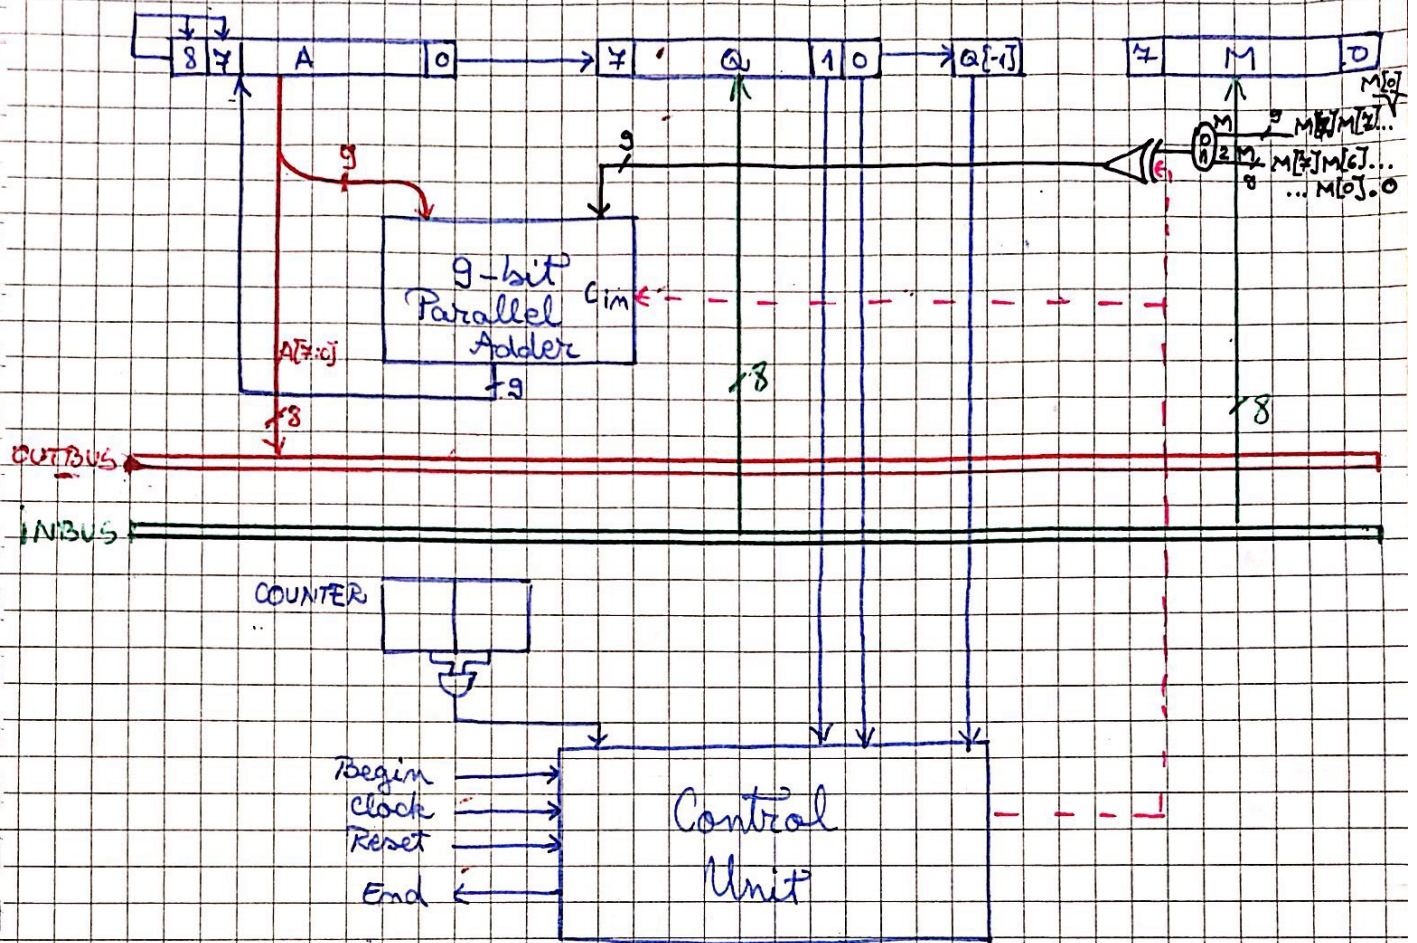 8 7 A 0
7 Q 1 0
Q[-1]
7 M 0
M[0]
M
9
M[7]M[7]...
0
1
2M
9
M[7]M[6]...
... M[0].0
9
9
9-bit
Parallel
Adder
Cin
A[7:0]
9
8
8
8
OUTBUS
INBUS
COUNTER
Begin
Clock
Reset
End
Control
Unit